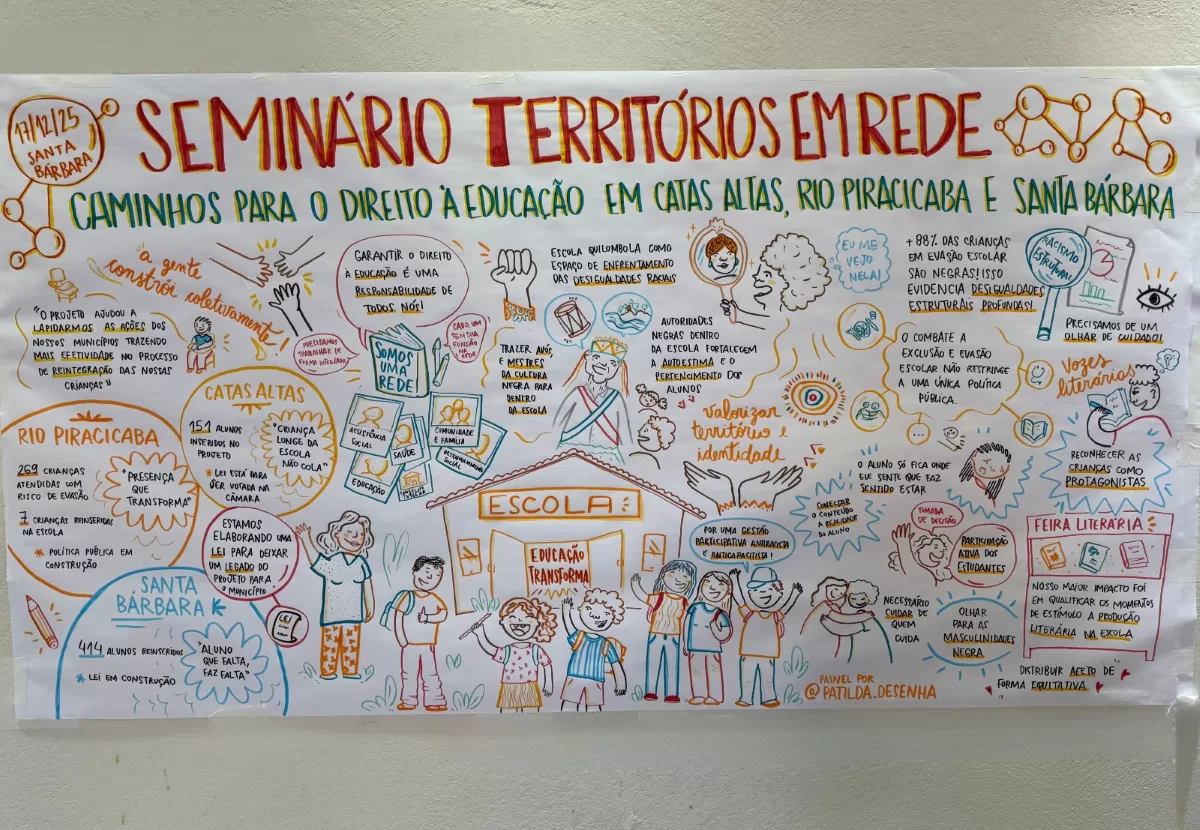 17/12/25
SANTA
BÁRBARA
SEMINÁRIO TERRITÓRIOS EM REDE
CAMINHOS PARA O DIREITO À EDUCAÇÃO EM CATAS ALTAS, RIO PIRACICABA E SANTA BÁRBARA
a gente
constrói coletivamente!
"O PROJETO AJUDOU A
LAPIDARMOS AS AÇÕES DOS
NOSSOS MUNICÍPIOS TRAZENDO
MAIS EFETIVIDADE NO PROCESSO
DE REINTEGRAÇÃO DAS NOSSAS
CRIANÇAS"
PRECISAMOS
TRABALHAR DE
FORMA INTEGRADA
GARANTIR O DIREITO
À EDUCAÇÃO É UMA
RESPONSABILIDADE DE
TODOS NÓS!
CADA UM
TEM SUA
FUNÇÃO
NA REDE
SOMOS
UMA
REDE
ASSISTÊNCIA
SOCIAL
SAÚDE
COMUNIDADE
E FAMÍLIA
EDUCAÇÃO
DESENVOLVIMENTO
SOCIAL
RIO PIRACICABA
269 CRIANÇAS
ATENDIDAS COM
RISCO DE EVASÃO
7 CRIANÇAS REINSERIDAS
NA ESCOLA
"PRESENÇA
QUE
TRANSFORMA"
* POLÍTICA PÚBLICA EM
CONSTRUÇÃO
CATAS ALTAS
151 ALUNOS
INSERIDOS NO
PROJETO
"CRIANÇA
LONGE DA
ESCOLA
NÃO COLA"
* LEI ESTÁ PARA
SER VOTADA NA
CÂMARA
ESTAMOS
ELABORANDO UMA
LEI PARA DEIXAR
UM LEGADO DO
PROJETO PARA
O MUNICÍPIO
LEI
SANTA
BÁRBARA
414 ALUNOS REINSERIDOS
* LEI EM CONSTRUÇÃO
"ALUNO
QUE FALTA,
FAZ FALTA"
ESCOLA QUILOMBOLA COMO
ESPAÇO DE ENFRENTAMENTO
DAS DESIGUALDADES RACIAIS
TRAZER AVÓS,
E MESTRES
DA CULTURA
NEGRA PARA
DENTRO
DA ESCOLA
AUTORIDADES
NEGRAS DENTRO
DA ESCOLA FORTALECEM
A AUTOESTIMA E O
PERTENCIMENTO DOS
ALUNOS
EU ME
VEJO
NELA!
valorizar
território e
identidade
ESCOLA
EDUCAÇÃO
TRANSFORMA
POR UMA GESTÃO
PARTICIPATIVA ANTIRACISTA
E ANTICAPACITISTA!
+88% DAS CRIANÇAS
EM EVASÃO ESCOLAR
SÃO NEGRAS! ISSO
EVIDENCIA DESIGUALDADES
ESTRUTURAIS PROFUNDAS!
RACISMO
ESTRUTURAL
PRECISAMOS DE UM
OLHAR DE CUIDADO!
O COMBATE A
EXCLUSÃO E EVASÃO
ESCOLAR NÃO RESTRINGE
A UMA ÚNICA POLÍTICA
PÚBLICA.
vozes
literárias
RECONHECER AS
CRIANÇAS COMO
PROTAGONISTAS
O ALUNO SÓ FICA ONDE
ELE SENTE QUE FAZ
SENTIDO ESTAR
CONECTAR
O CONTEÚDO
A REALIDADE
DO ALUNO
TOMADA
DE DECISÃO
PARTICIPAÇÃO
ATIVA DOS
ESTUDANTES
NECESSÁRIO
CUIDAR DE
QUEM
CUIDA
OLHAR
PARA AS
MASCULINIDADES
NEGRA
FEIRA LITERÁRIA
NOSSO MAIOR IMPACTO FOI
EM QUALIFICAR OS MOMENTOS
DE ESTÍMULO A PRODUÇÃO
LITERÁRIA NA ESCOLA
DISTRIBUIR AFETO DE
FORMA EQUITATIVA
PAINEL POR
@PATILDA.DESENHA